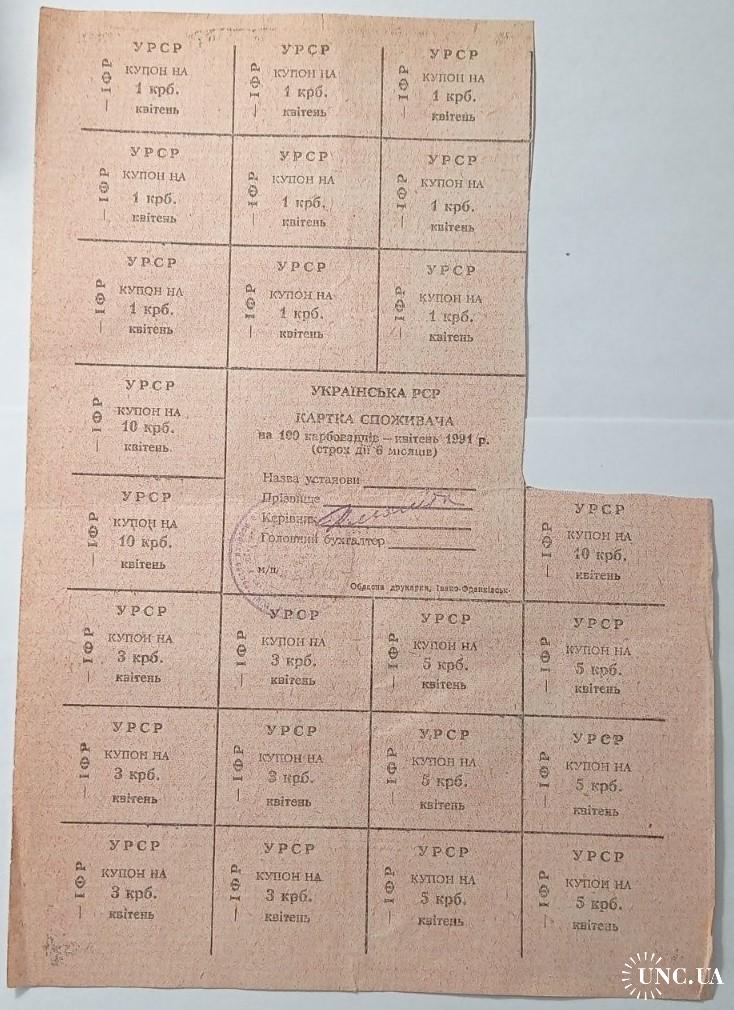 УРСР
— ІФР
КУПОН НА
1 крб.
квітень
УРСР
— ІФР
КУПОН НА
1 крб.
квітень
УРСР
— ІФР
КУПОН НА
1 крб.
квітень
УРСР
— ІФР
КУПОН НА
1 крб.
квітень
УРСР
— ІФР
КУПОН НА
1 крб.
квітень
УРСР
— ІФР
КУПОН НА
1 крб.
квітень
УРСР
— ІФР
КУПОН НА
1 крб.
квітень
УРСР
— ІФР
КУПОН НА
1 крб.
квітень
УРСР
— ІФР
КУПОН НА
1 крб.
квітень
УРСР
— ІФР
КУПОН НА
10 крб.
квітень
УКРАЇНСЬКА РСР
КАРТКА СПОЖИВАЧА
на 100 карбованців — квітень 1991 р.
(строк дії 6 місяців)
Назва установи
Прізвище
Керівник
Головний бухгалтер
м/п
Обласна друкарня, Івано-Франківськ
УРСР
— ІФР
КУПОН НА
10 крб.
квітень
УРСР
— ІФР
КУПОН НА
10 крб.
квітень
УРСР
— ІФР
КУПОН НА
3 крб.
квітень
УРСР
— ІФР
КУПОН НА
3 крб.
квітень
УРСР
— ІФР
КУПОН НА
5 крб.
квітень
УРСР
— ІФР
КУПОН НА
5 крб.
квітень
УРСР
— ІФР
КУПОН НА
3 крб.
квітень
УРСР
— ІФР
КУПОН НА
3 крб.
квітень
УРСР
— ІФР
КУПОН НА
5 крб.
квітень
УРСР
— ІФР
КУПОН НА
5 крб.
квітень
УРСР
— ІФР
КУПОН НА
3 крб.
квітень
УРСР
— ІФР
КУПОН НА
3 крб.
квітень
УРСР
— ІФР
КУПОН НА
5 крб.
квітень
УРСР
— ІФР
КУПОН НА
5 крб.
квітень
UNC.UA